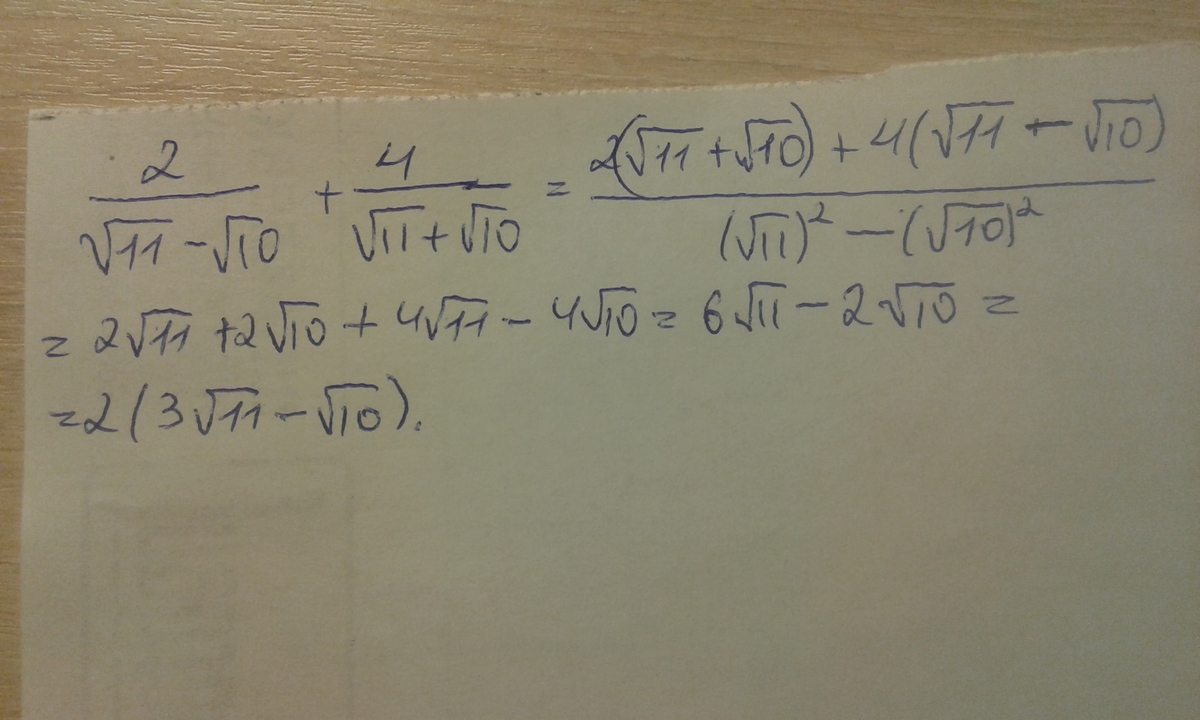 2/(√11 - √10) + 4/(√11 + √10) = (2(√11 + √10) + 4(√11 - √10))/((√11)² - (√10)²)
= 2√11 + 2√10 + 4√11 - 4√10 = 6√11 - 2√10 =
= 2(3√11 - √10).